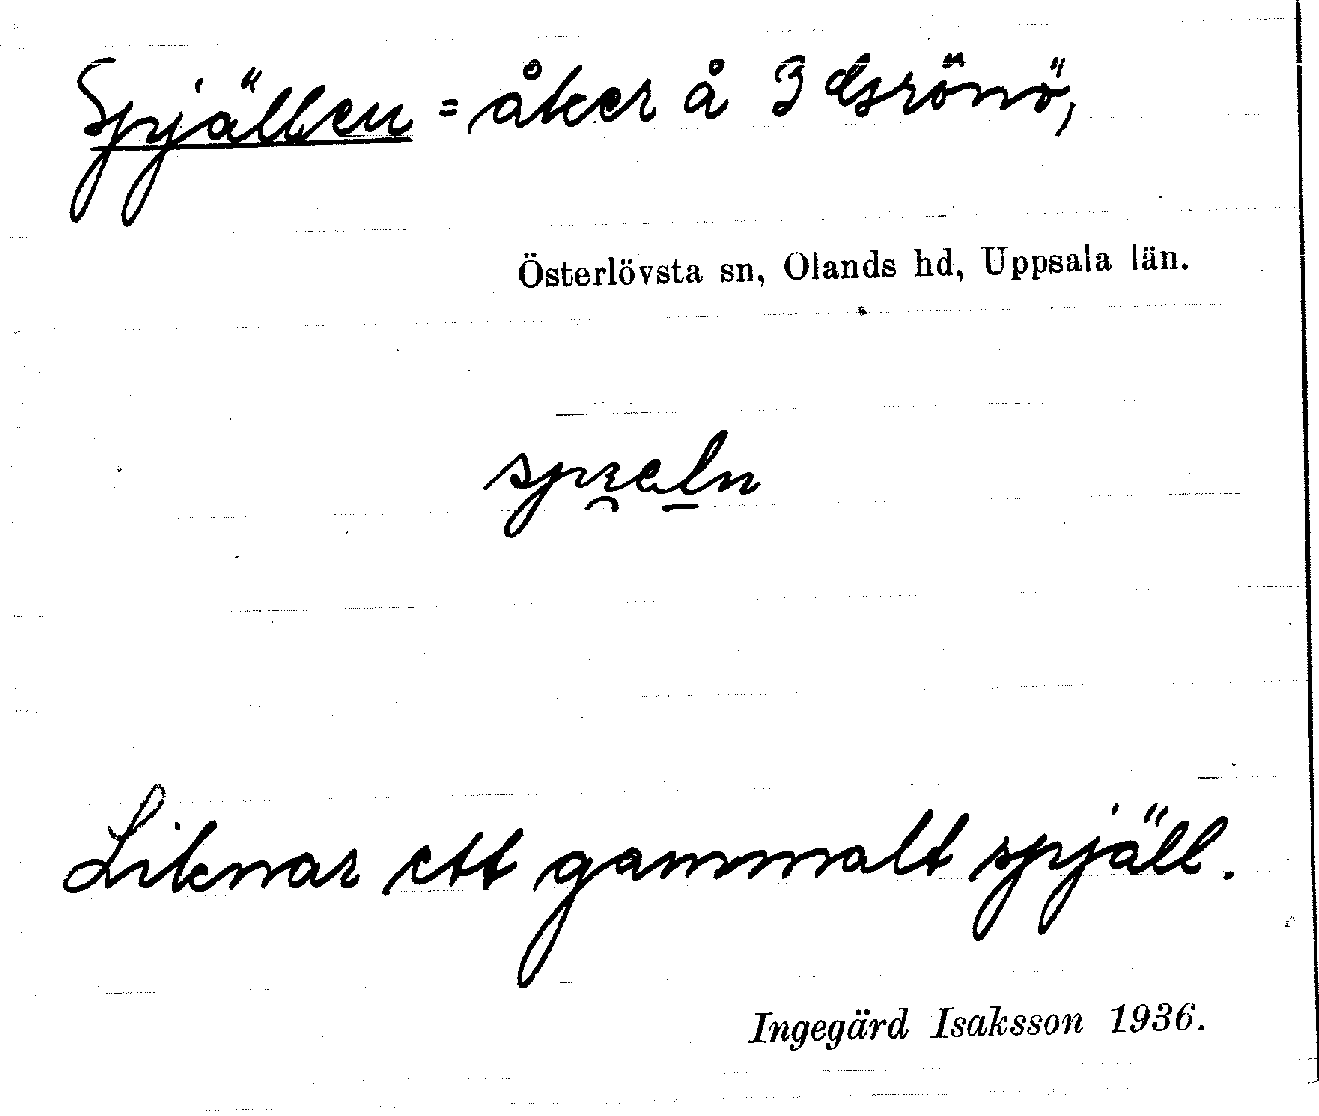 Spjällen = åker å 3 Esrönö,
Österlövsta sn, Olands hd, Uppsala län.
Liknar ett gammalt spjäll.
Ingegärd Isaksson 1936.